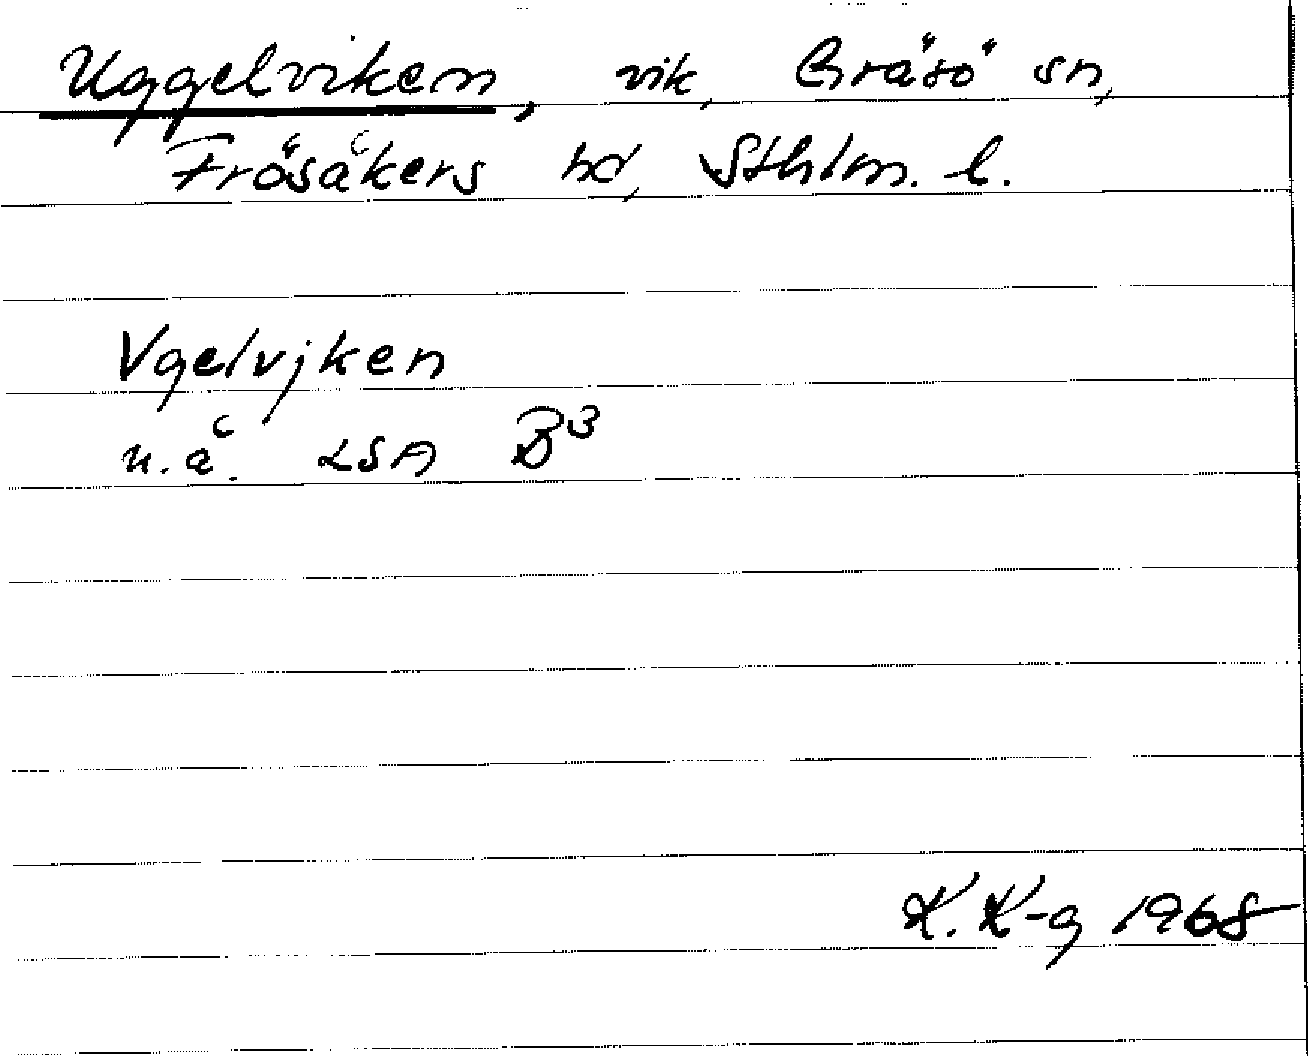 Uggelviken, vik, Gräsö sn,
Frösåkers hd, Sthlm. l.
Vgelvjken
u.å. LSA B3
K. K-g 1968